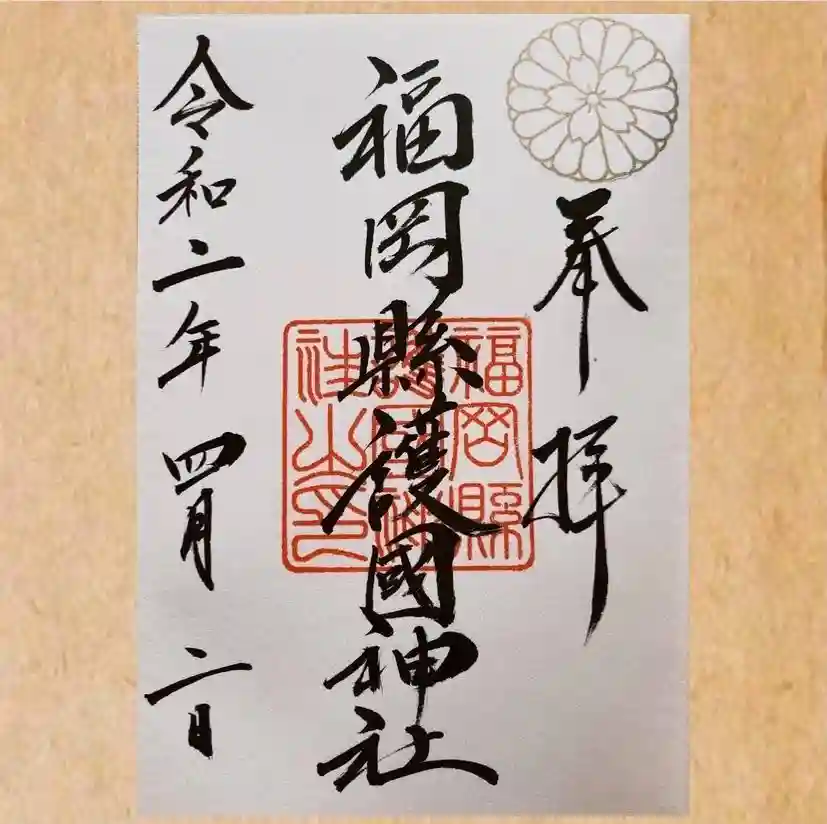 奉拝
福岡縣護國神社
福岡縣
護國神
社之印
令和二年四月二日